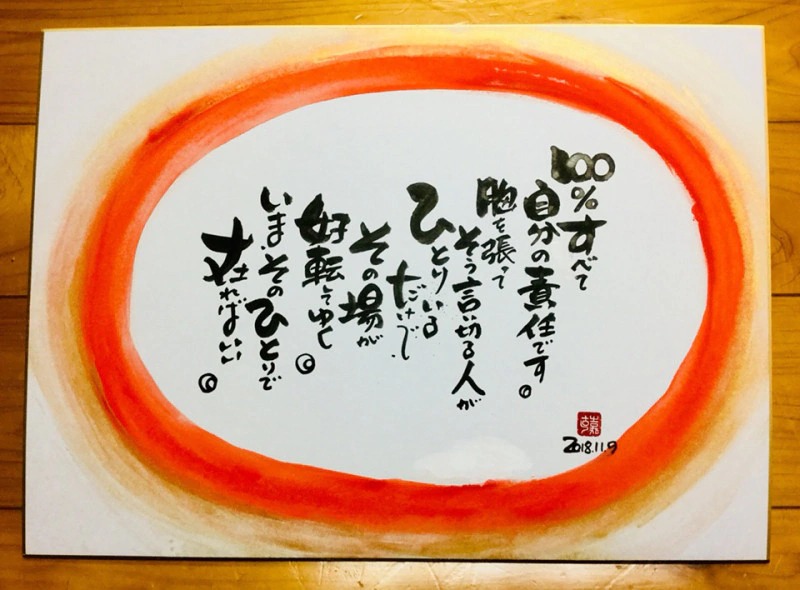 100%すべて
自分の責任です。
胸を張って
そう言い切る人が
ひとりいる
だけで、
その場が
好転してゆく。
いま、そのひとりで
在ればいい。
2018.11.9